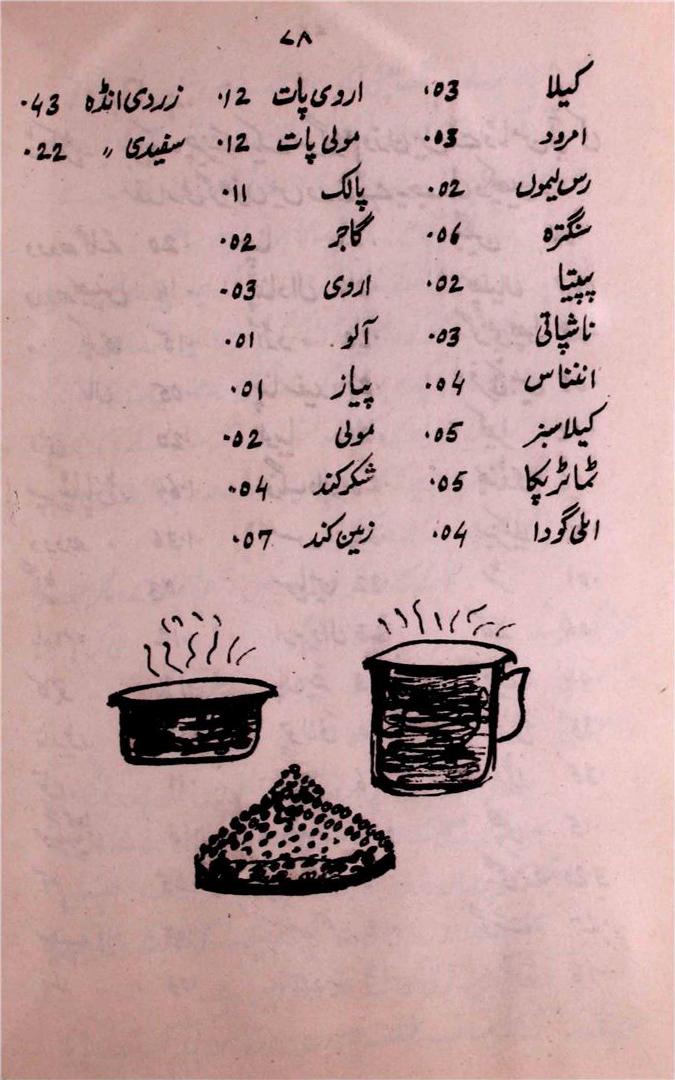 ۷۸
کیلا ۰.03 اروی پات ۰.12 زردی انڈہ ۰.43
امرود ۰.03 مولی پات ۰.12 سفیدی 〃 ۰.22
رس لیموں ۰.02 پالک ۰.11
سنگترہ ۰.06 گاجر ۰.02
پپیتا ۰.02 اروی ۰.03
ناشپاتی ۰.03 آلو ۰.01
انناس ۰.04 پیاز ۰.01
کیلا سبز ۰.05 مولی ۰.02
ٹماٹر پکا ۰.05 شکر کند ۰.04
املی گودا ۰.04 زمین کند ۰.07